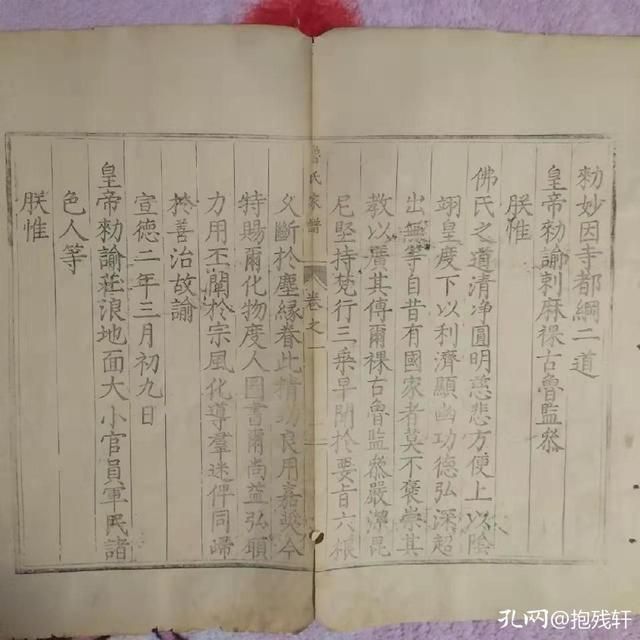 勑妙因寺都綱二道
皇帝勑諭剌麻祼古魯監叅
朕惟
佛氏之道清净圓明慈悲方便上以陰
翊皇度下以利濟顯幽功德弘深起
出無等自昔有國家者莫不褒崇其
教以廣其傳爾祼古魯監叅毘
尼堅持梵行三乗早開扵要旨六根
魯氏家譜 卷之一
久斷扵塵緣眷此精功良用嘉歎今
特賜爾化物度人圖書爾尚益弘願
力用丕闡扵宗風化導羣迷俾同歸
扵善治故諭
宣德二年三月初九日
皇帝勑諭莊浪地面大小官員軍民諸
色人等
朕惟
孔网@抱残轩